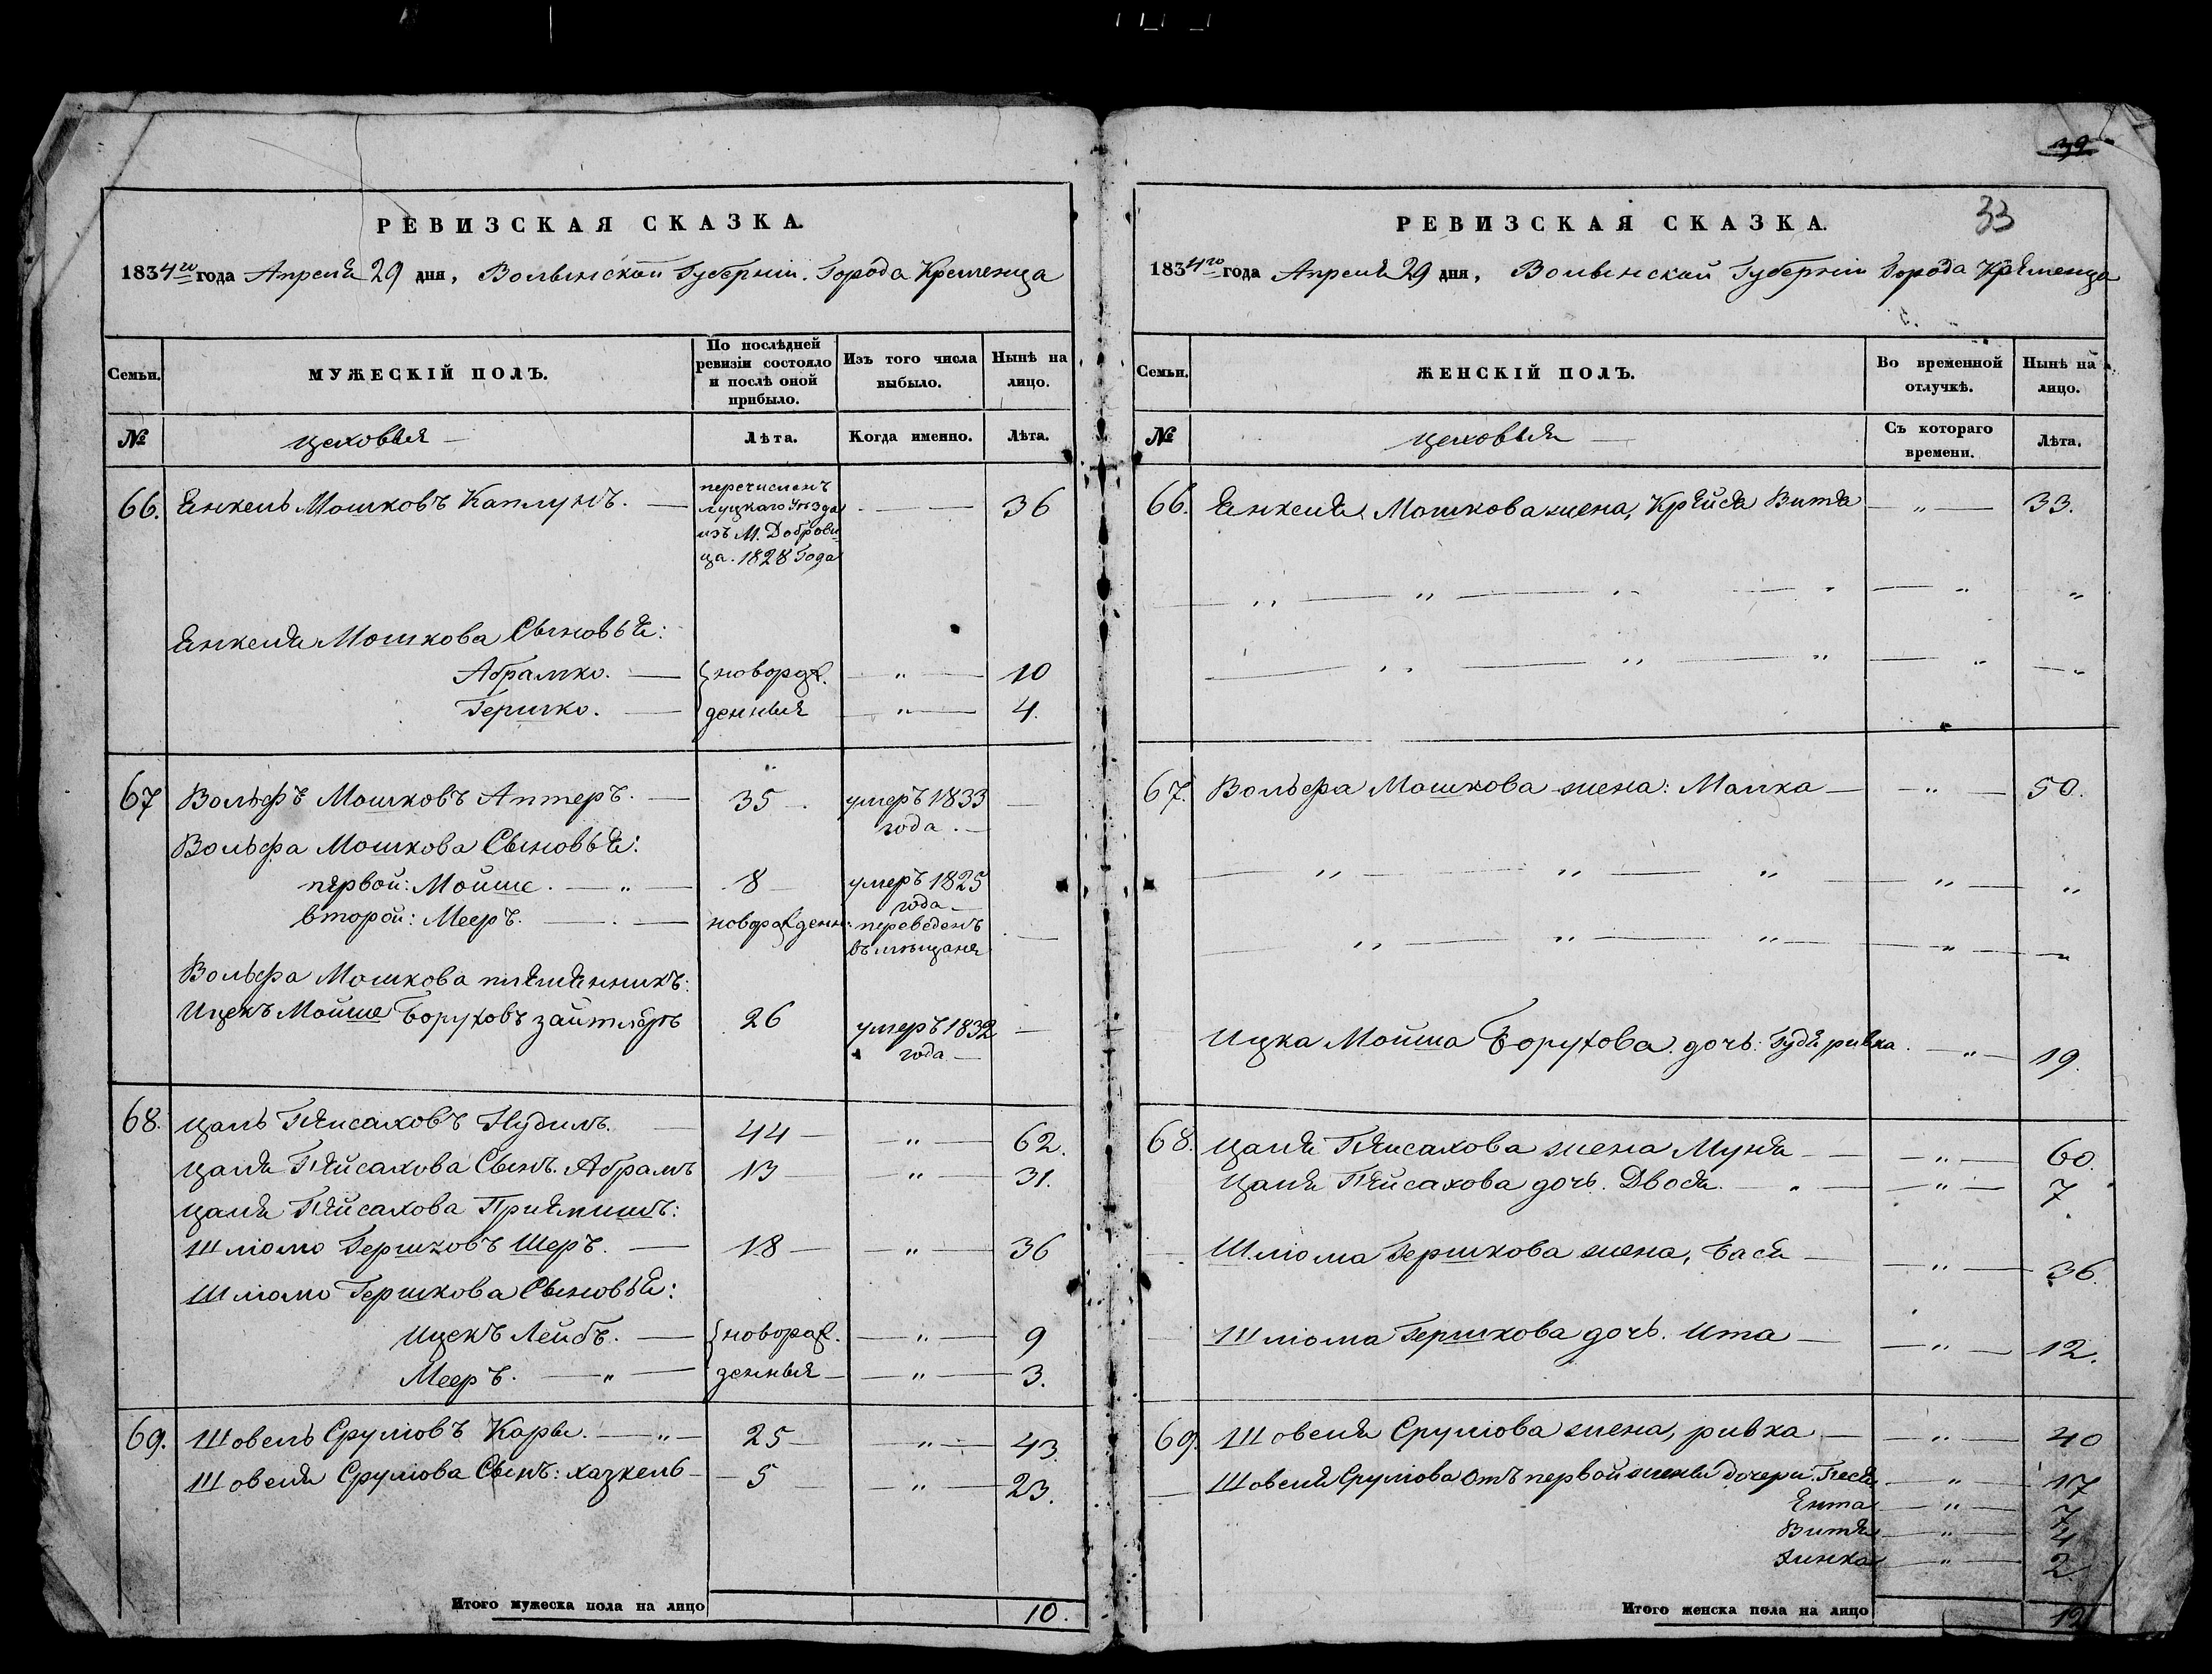 32
РЕВИЗСКАЯ СКАЗКА.
1834го года Апреля 29 дня, Волынской Губерніи. Города Кременца
Семьи.
МУЖЕСКІЙ ПОЛЪ.
По послѣдней ревизіи состояло и послѣ оной прибыло.
Изъ того числа выбыло.
Нынѣ на лицо.
№
цеховыя
Лѣта.
Когда именно.
Лѣта.
66. Янкель Мошковъ Каплунъ. — перечисленъ — — 36
луцкаго Уѣзда
изъ М. Домброви-
ца. 1828 Года
Янкеля Мошкова Сыновья:
Абрамко. — новорож. — „ — 10
Гершко. — денныя — „ — 4.
67 Вольфъ Мошковъ Аптеръ. — 35 — умеръ 1833 —
года. —
Вольфа Мошкова Сыновья:
первой: Мойше. — „ — 8 умеръ 1825
года —
второй: Мееръ. — новорожденн. переведенъ —
въ мѣщане
Вольфа Мошкова племянникъ:
Ицекъ Мойше Боруховъ зайтлеръ 26 умеръ 1832 —
года —
68. Цаль Пейсаховъ Нудимъ. — 44 — „ — 62.
Цаля Пейсахова Сынъ. Абрамъ 13 — „ — 31.
Цаля Пейсахова Приемишъ:
Шлiомо Гершковъ Шеръ. — 18 — „ — 36
Шлiомо Гершкова Сыновья:
Ицекъ Лейбъ. — новорож. — „ — 9
Мееръ. — „ — денныя — „ — 3.
69. Шовель Срулiовъ Карвы. — „ — 25 — „ — 43.
Шовеля Срулiова Сынъ: хазкель — 5 — „ — 23.
Итого мужеска пола на лицо 10.
РЕВИЗСКАЯ СКАЗКА. 33
1834го года Апреля 29 дня, Волынской Губерніи Города Кременца
Семьи.
ЖЕНСКІЙ ПОЛЪ.
Во временной отлучкѣ.
Нынѣ на лицо.
№
цеховыя —
Съ котораго времени.
Лѣта.
66. Янкеля Мошкова жена, Крейса Витя — „ — 33.
67. Вольфа Мошкова жена: Малка — „ — 50.
Ицка Мойша Борухова. дочь: Гудя ривка. — „ — 19.
68. Цаля Пейсахова жена Муня — „ — 60.
Цаля Пейсахова дочь. Двося. — „ — 7
Шлiома Гершкова жена, Бася — „ — 36.
Шлiома Гершкова дочь. Ита — „ — 12.
69. Шовеля Срулiова жена, ривка — „ — 40
Шовеля Срулiова отъ первой жены дочери. Песя — „ — 17
Ента — „ — 7
Витя — „ — 4
Динка — „ — 2
Итого женска пола на лицо 12